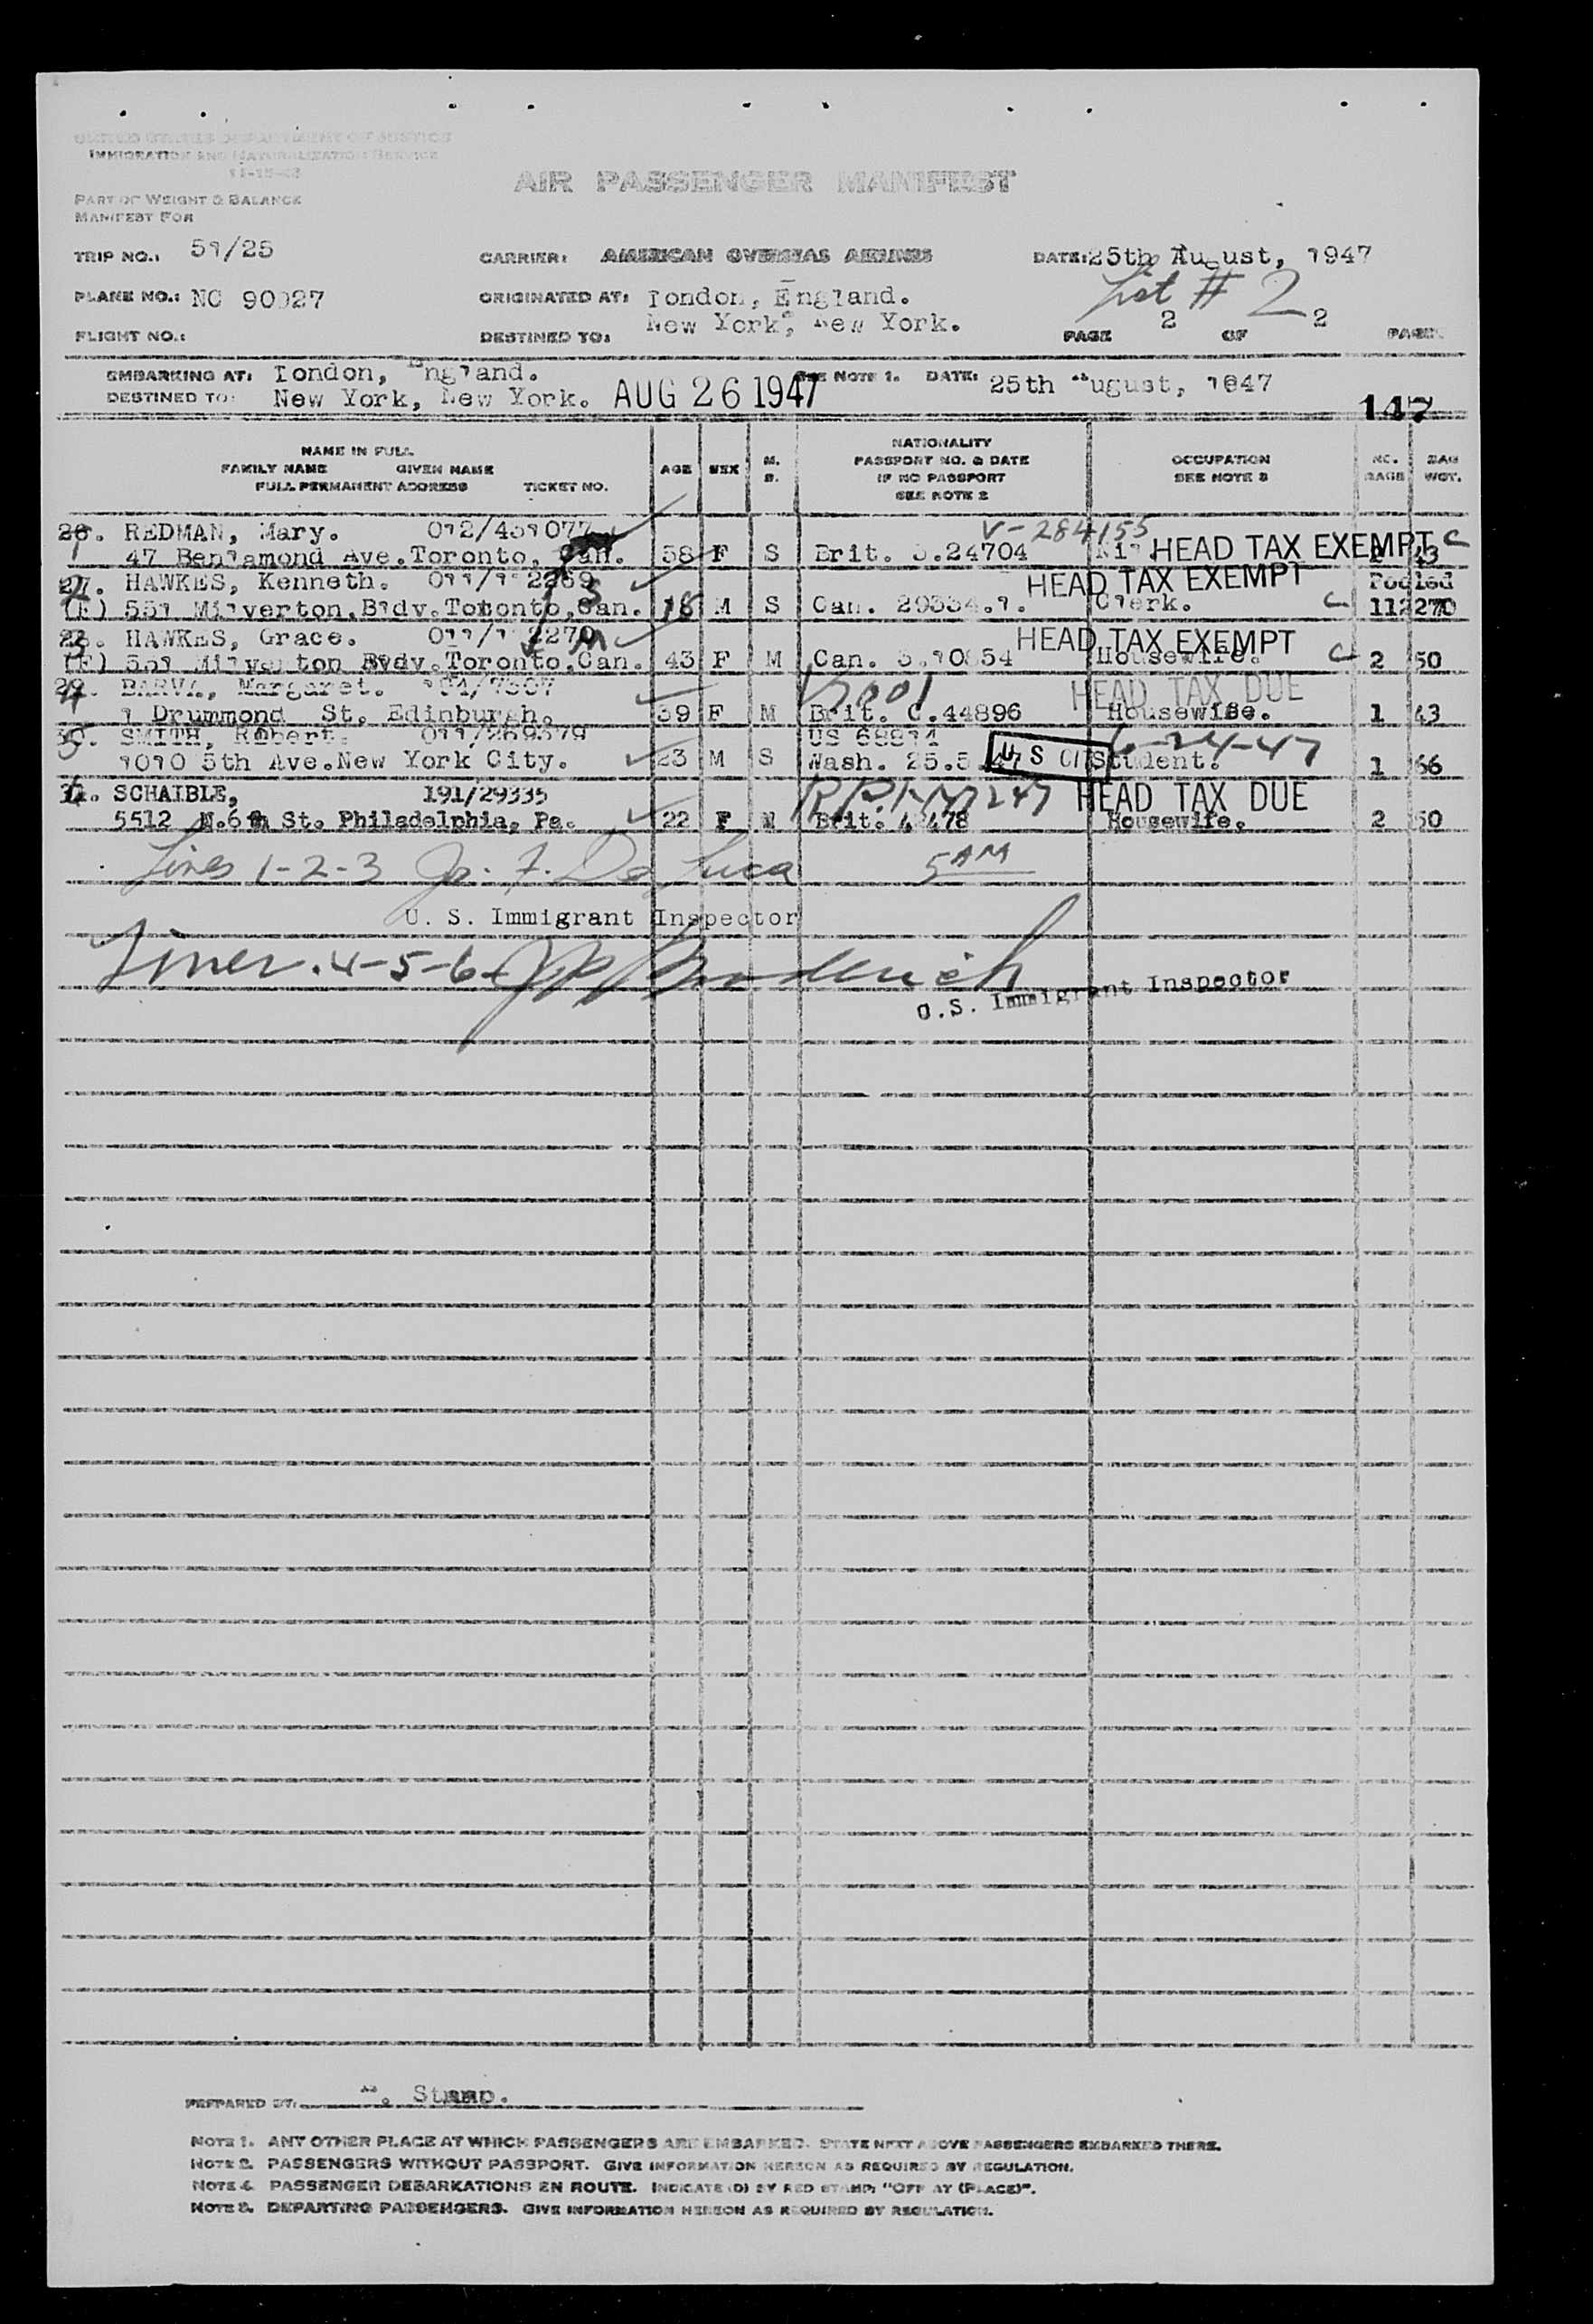 UNITED STATES DEPARTMENT OF JUSTICE
IMMIGRATION AND NATURALIZATION SERVICE
11-15-43
AIR PASSENGER MANIFEST
PART OF WEIGHT & BALANCE
MANIFEST FOR
TRIP NO.: 51/25 CARRIER: AMERICAN OVERSEAS AIRLINES DATE: 25th August, 1947
List # 2
PLANE NO.: NC 90927 ORIGINATED AT: London, England.
FLIGHT NO.: DESTINED TO: New York, New York. PAGE 2 OF 2 PAGES
EMBARKING AT: London, England. SEE NOTE 1. DATE: 25th August, 1947
DESTINED TO: New York, New York. AUG 26 1947
147
NAME IN FULL
FAMILY NAME GIVEN NAME
FULL PERMANENT ADDRESS TICKET NO.
AGE SEX M. S.
NATIONALITY
PASSPORT NO. & DATE
IF NO PASSPORT
SEE NOTE 2
OCCUPATION
SEE NOTE 3
NO. BAGS BAG WGT.
26. REDMAN, Mary. 012/451077 V-284155
1 47 Bengamond Ave.Toronto, Can. 58 F S Brit. 3.24704 HEAD TAX EXEMPT C 43
27. HAWKES, Kenneth. HEAD TAX EXEMPT Pooled
2 (F) 551 Milverton.Bldv.Toronto,Can. 18 M S Can. 29334.1. Clerk. C 112 270
28. HAWKES, Grace. HEAD TAX EXEMPT
3 (F) 551 Milverton Bvdv.Toronto,Can. 43 F M Can. 3.10854 Housewife. C 2 50
29. BARVA, Margaret. 104/7307 HEAD TAX DUE
4 1 Drummond St. Edinburgh. 39 F M Brit. C.44896 Housewife. 1 43
30. SMITH, Robert. 011/269379 US 68914
5 1010 5th Ave.New York City. 23 M S Wash. 25.5.47 U S CIT Student. 6-24-47 1 66
31. SCHAIBLE, 191/29335 HEAD TAX DUE
6 5512 N.6th St. Philadelphia, Pa. 22 F M Brit. A 478 Housewife. 2 50
Lines 1-2-3 Jr. F. De Luca 5 AM
U. S. Immigrant Inspector
Lines.4-5-6-
U.S. Immigrant Inspector
PREPARED BY: Stamp.
NOTE 1. ANY OTHER PLACE AT WHICH PASSENGERS ARE EMBARKED. STATE NEXT ABOVE PASSENGERS EMBARKED THERE.
NOTE 2. PASSENGERS WITHOUT PASSPORT. GIVE INFORMATION HEREON AS REQUIRED BY REGULATION.
NOTE 4. PASSENGER DEBARKATIONS EN ROUTE. INDICATE (D) BY RED STAMP: "OFF AT (PLACE)".
NOTE 3. DEPARTING PASSENGERS. GIVE INFORMATION HEREON AS REQUIRED BY REGULATION.